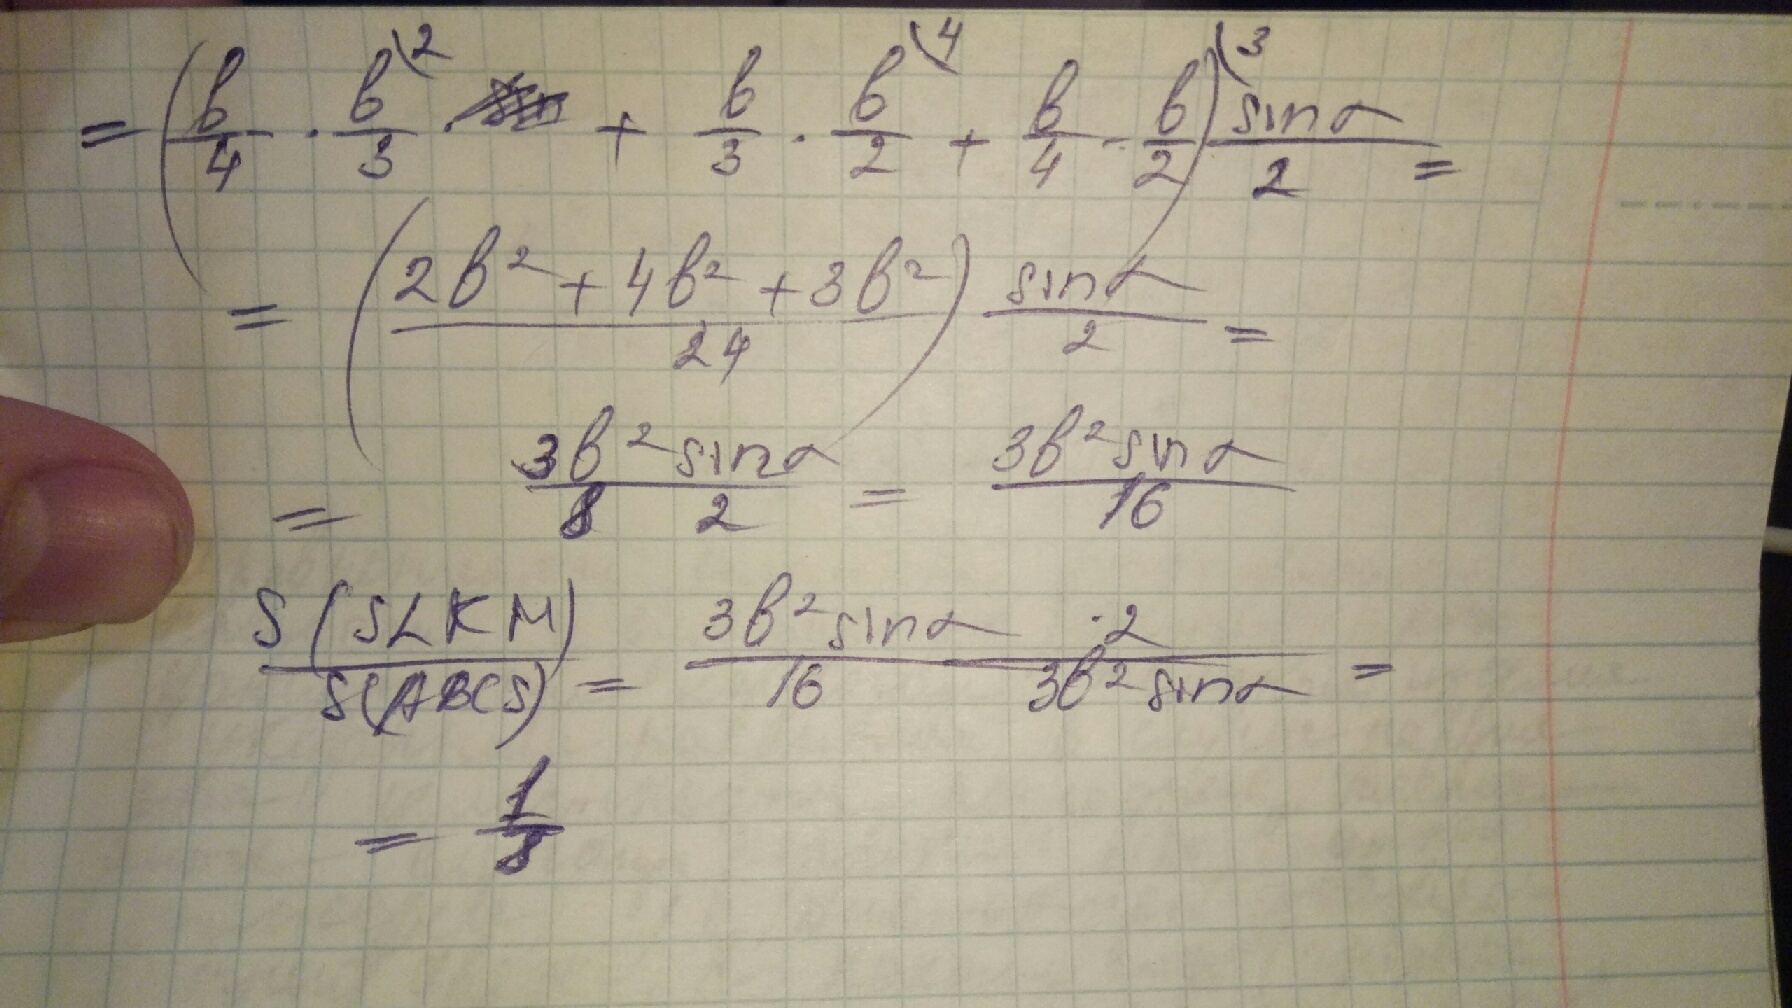 = (b/4 · b/3 \2 · + b/3 · b/2 \4 + b/4 · b/2 \3) sinα/2 =
= ((2b² + 4b² + 3b²)/24) sinα/2 =
= 3b² sinα/(8 2) = 3b² sinα/16
S(SLKM)/S(ABCS) = 3b² sinα/16 · 2/(3b² sinα) =
= 1/8